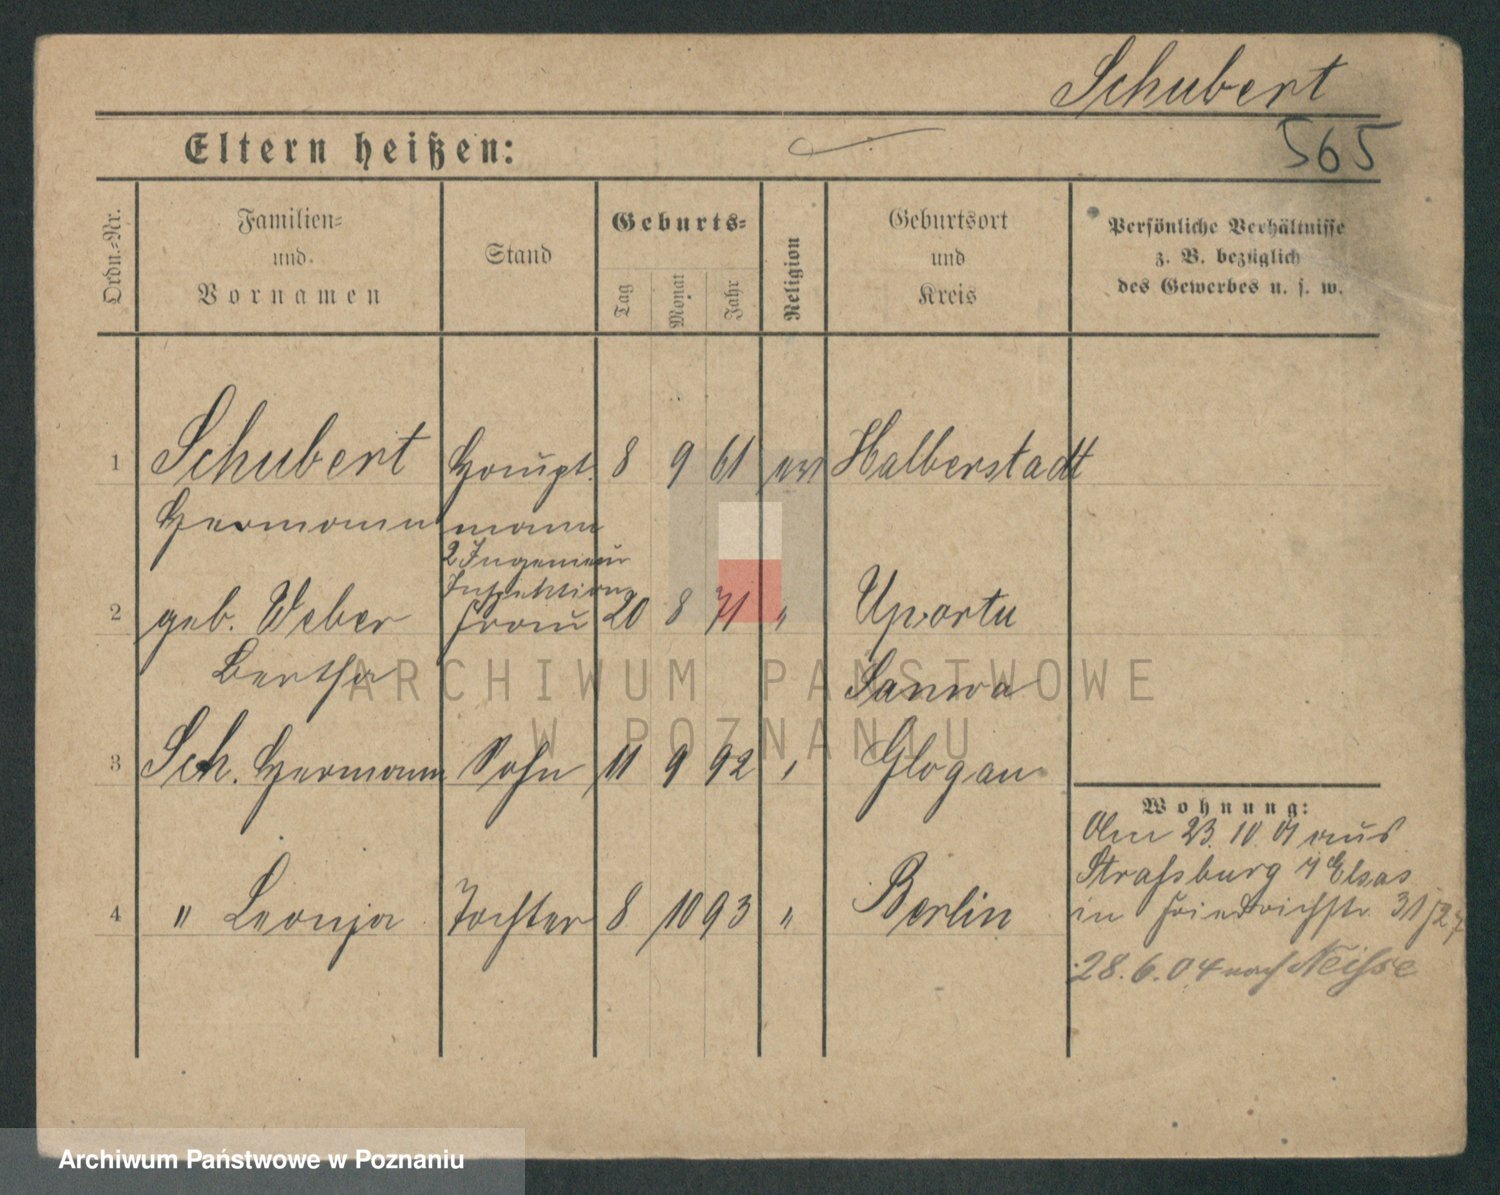 Schubert
Eltern heißen:
565
Ordn.-Nr.
Familien-
und
Vornamen
Stand
Geburts-
Tag
Monat
Jahr
Religion
Geburtsort
und
Kreis
Persönliche Verhältnisse
z. B. bezüglich
des Gewerbes u. s. w.
1 Schubert Haupt- 8 9 61 ev Halberstadt
Hermann mann
2 Ingenieur
Inspektion
2 geb. Weber Frau 20 8 71 "
Bertha
3 Sch. Hermann Sohn 11 9 92 " Glogau
Wohnung:
Am 23. 10. 01 aus
Strafsburg Elsas
4 " Leonja Tochter 8 10 93 " Berlin
in Friedrichstr. 31
28.6.04 nach Neisse
ARCHIWUM PAŃSTWOWE
W POZNANIU
Archiwum Państwowe w Poznaniu